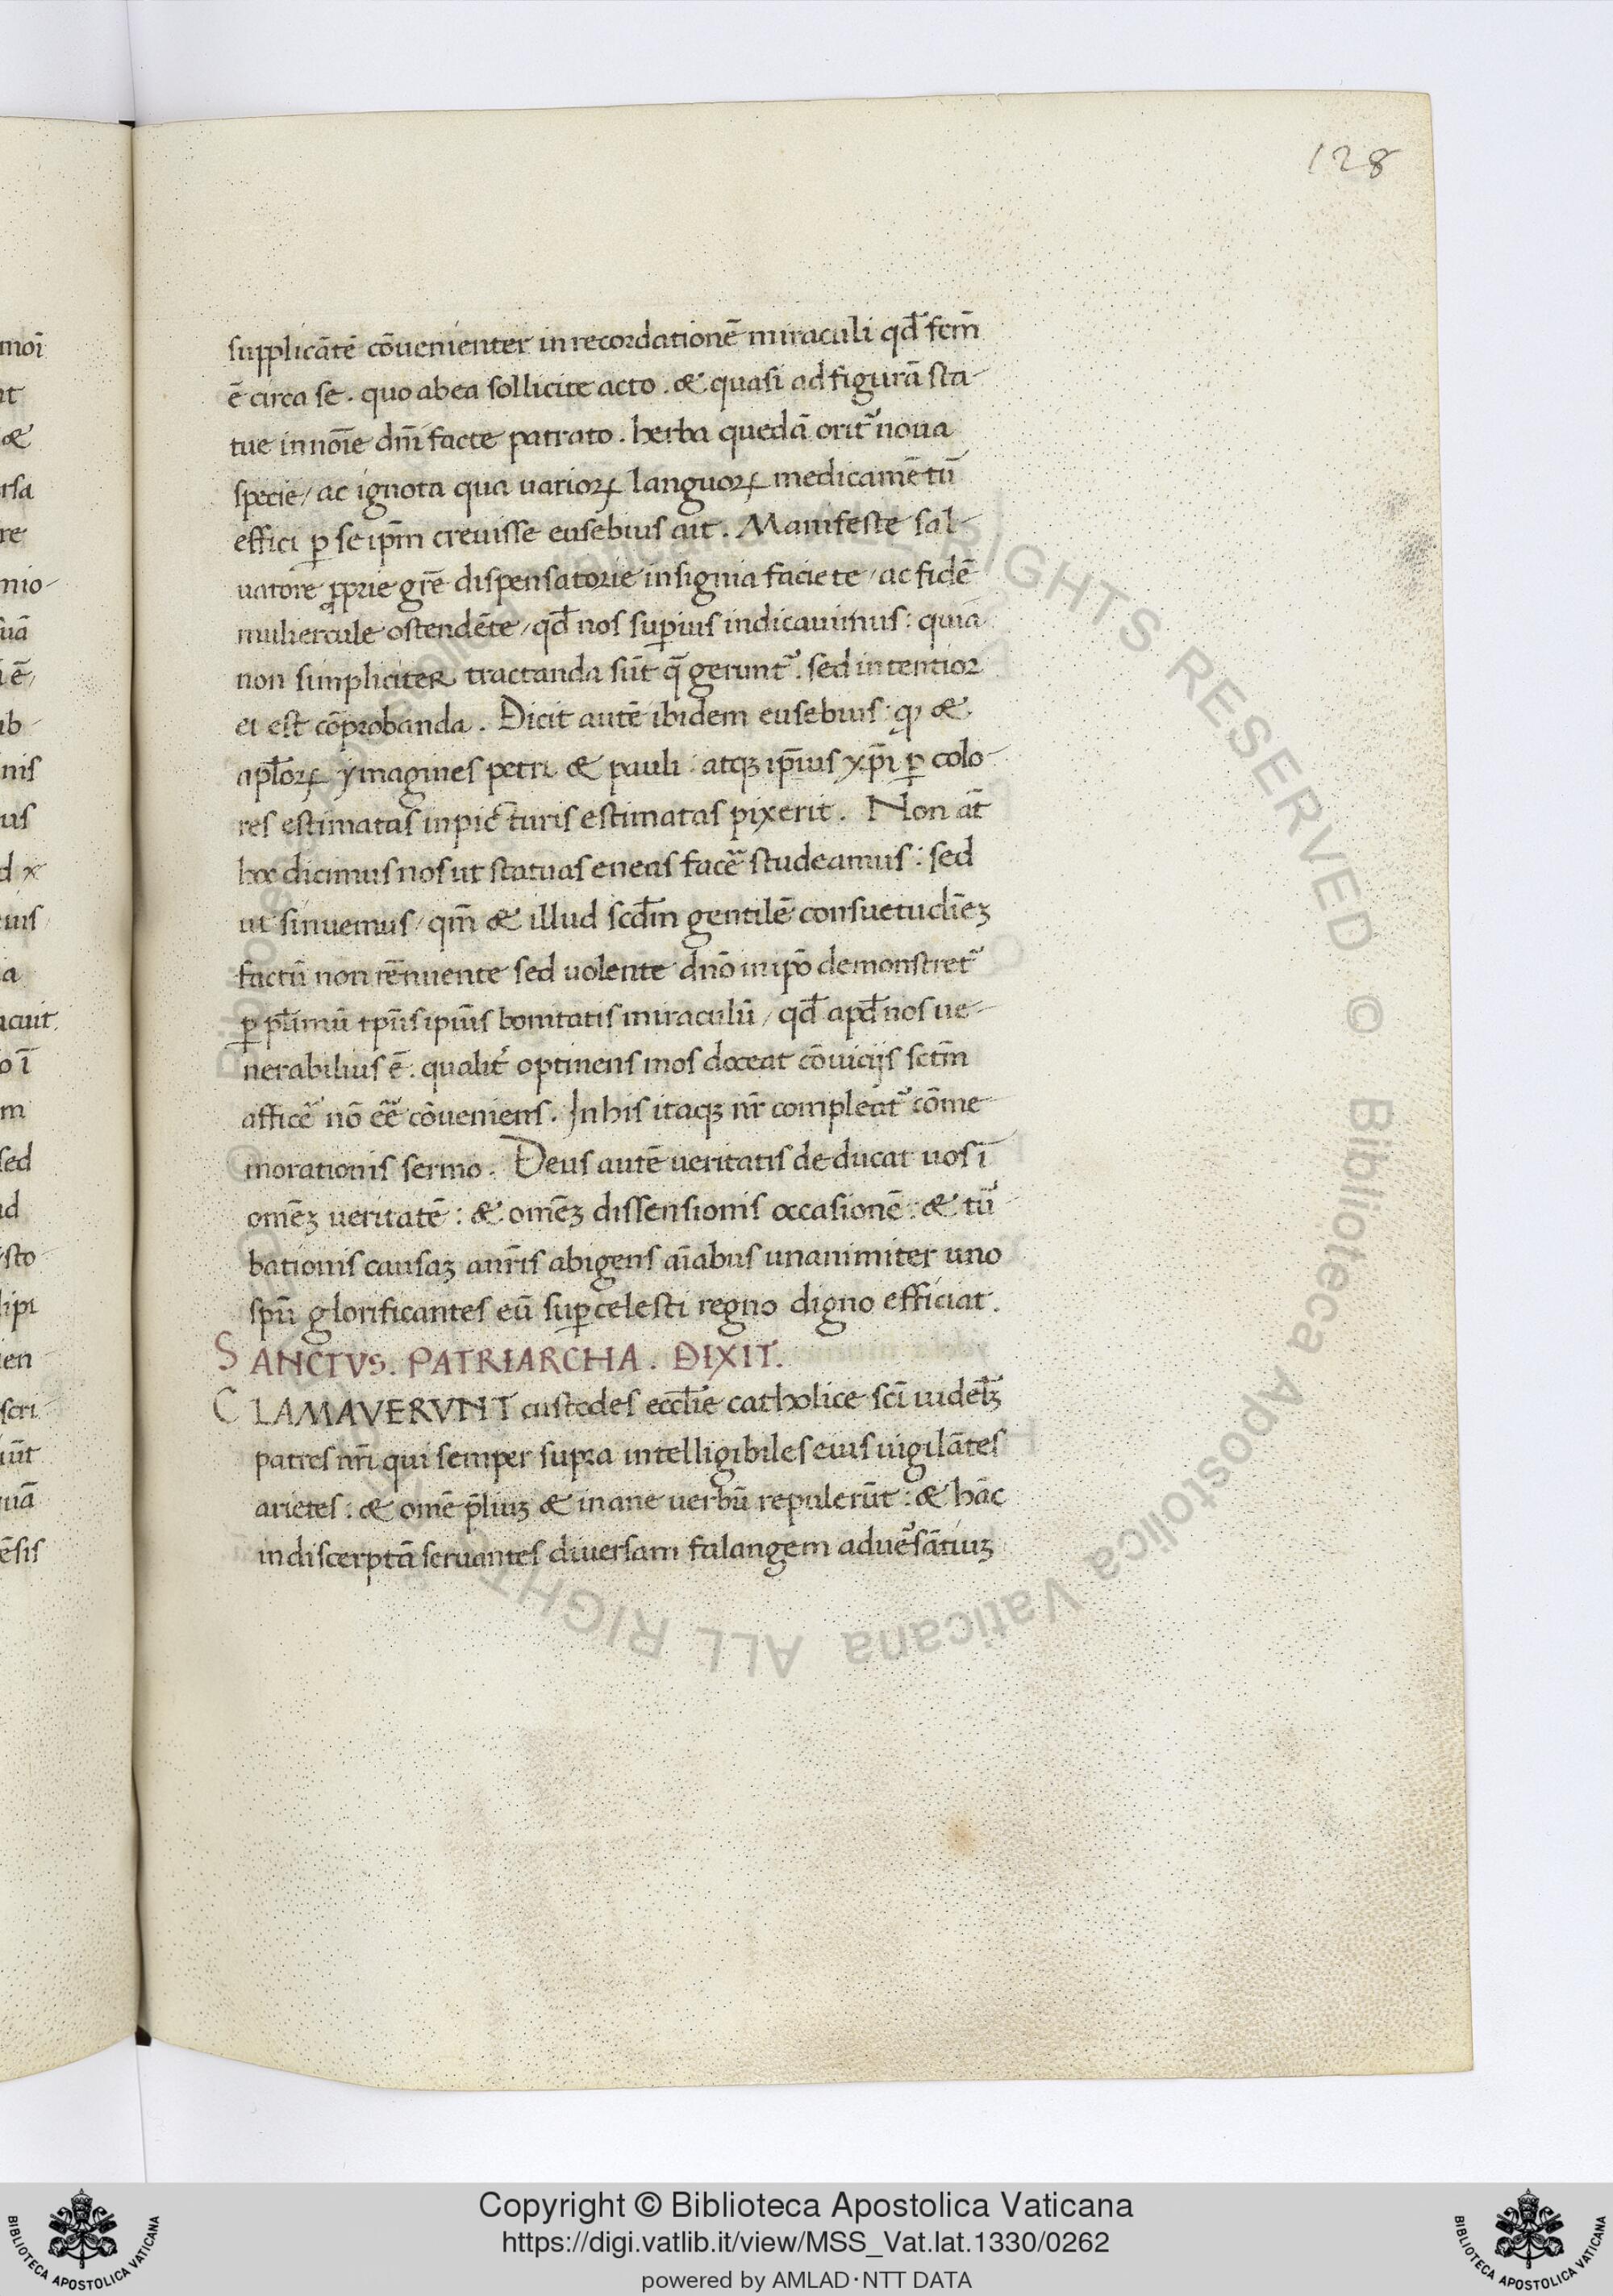 128
supplicātē cōuenienter in recordationē miraculi qđ fem̄
ē circa se. quo ab ea sollicite acto. & quasi ad figurā sta-
tue in noīe dnī facte patrato. herba quedā orit᷑ noua
specie/ ac ignota qua uarioꝝ languoꝝ medicamētū
effici ꝑ se ip̄m creuisse eusebius ait. Manifeste sal-
uatore ꝓprie grē dispensatorie insignia faciete/ ac fidē
muliercule ostendēte/ qđ nos superius indicauimus: quia
non simpliciter tractanda sūt q̄ gerunt᷑. sed intentior
ei est cōprobanda. Dicit autē ibidem eusebius: ꝙ &
apl̄oꝝ ymagines petri & pauli: atqꝫ ip̄ius xp̄i ꝑ colo-
res estimatas in picturis estimatas pixerit. Non at̄
hoc dicimus nos ut statuas eneas facē studeamus: sed
ut sinuemus/ qm̄ & illud scđm gentilē consuetudīeꝫ
factū non rēnuente sed uolente dn̄o in ip̄o demonstret᷑
ꝑ pl̄imū tp̄us ipiūs bonitatis miraculū/ qđ apđ nos ue-
nerabilius ē. qualit᷑ optinens mos doceat cōuicijs sctm̄
afficē nō eē cōueniens. In his itaqꝫ nr̄ compleat᷑ cōme-
morationis sermo. Deus autē ueritatis deducat uos ī
omēꝫ ueritatē: & omēꝫ dissensionis occasionē: & tū-
bationis causaꝫ a nr̄is abigens aīabus unanimiter uno
spū glorificantes eū suꝑcelesti regno digno efficiat.
SANCTVS. PATRIARCHA. DIXIT.
CLAMAVERVNT custodes eccl̄ie catholice scī uidel̄ꝫ
patres nr̄i qui semper supra intelligibiles eius uigilātes
arietes: & omē p̄liuꝫ & inane uerbū repulerūt: & hāc
indiscerptā seruantes diuersam falangem aduēsātiuꝫ
moī
nt
&
rsa
re
nio-
uā
ē/
ib-
nis
us
d x
eius
ia
acuit
o ī
m
sed
ad
sto-
lipi
en-
scri-
iūt
uā
ēsis
Copyright © Biblioteca Apostolica Vaticana
https://digi.vatlib.it/view/MSS_Vat.lat.1330/0262
powered by AMLAD·NTT DATA
BIBLIOTECA APOSTOLICA VATICANA
BIBLIOTECA APOSTOLICA VATICANA
© Biblioteca Apostolica Vaticana ALL RIGHTS RESERVED